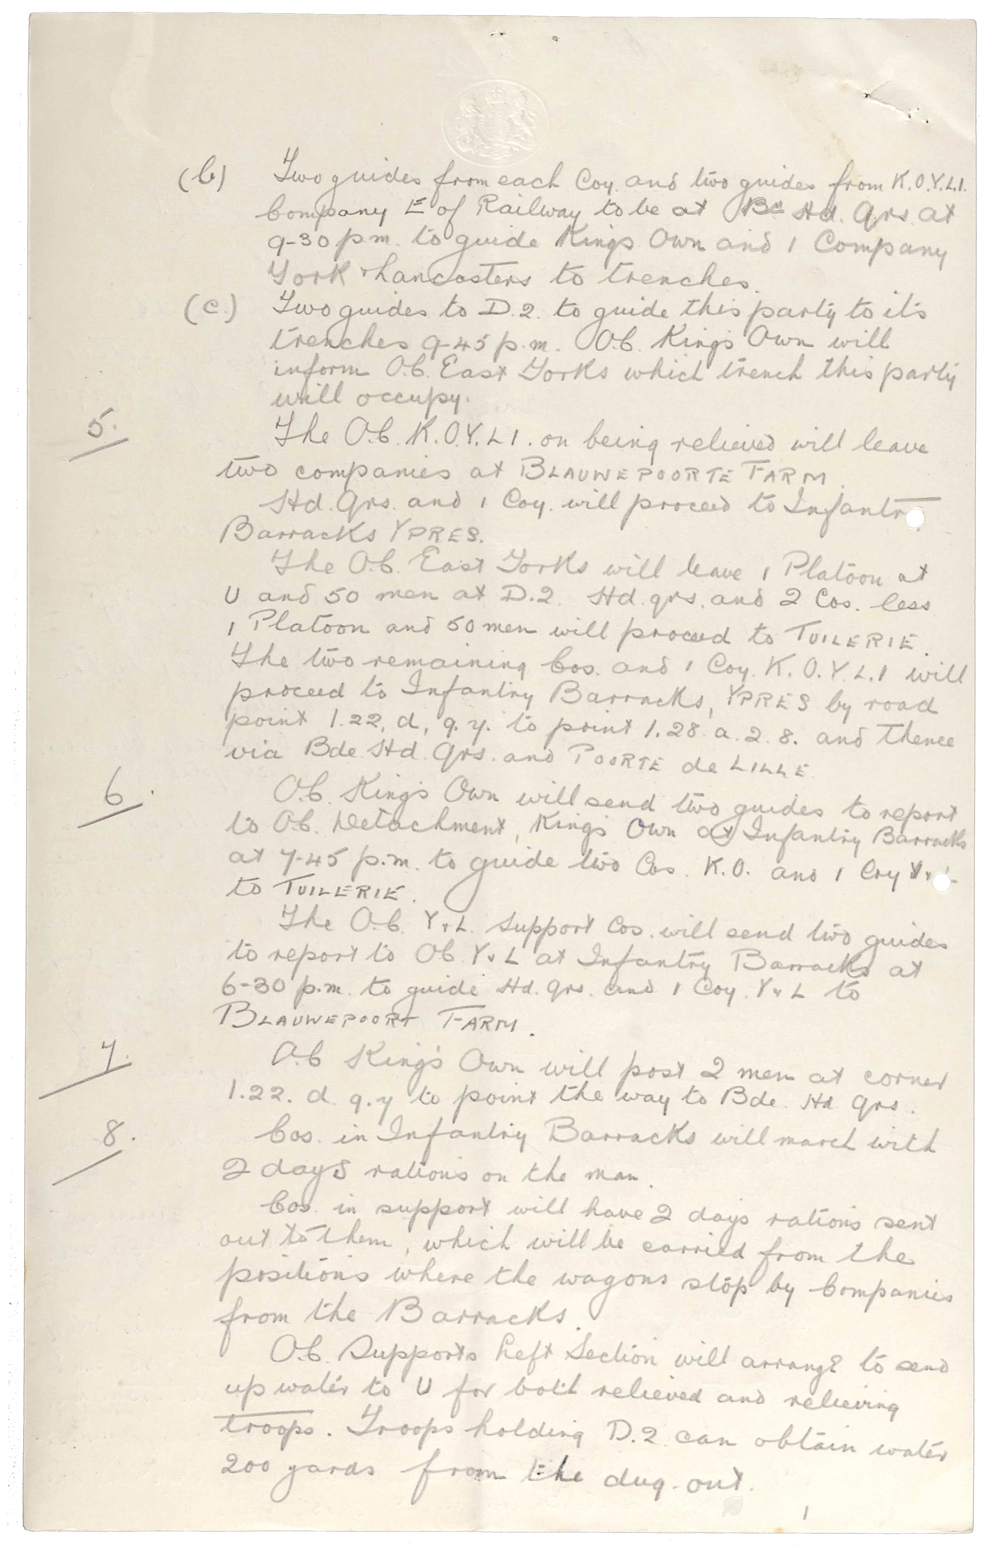 (b) Two guides from each Coy. and two guides from K.O.Y.L.I.
Company E of Railway to be at Bde Hd. Qrs. at
9-30 p.m. to guide King's Own and 1 Company
York & Lancasters to trenches.
(c) Two guides to D.2. to guide this party to its
trenches 9-45 p.m. O.C. King's Own will
inform O.C. East Yorks which trench this party
will occupy.
5. The O.C. K.O.Y.L.I. on being relieved will leave
two companies at BLAUWEPOORTE FARM.
Hd. Qrs. and 1 Coy. will proceed to Infantry
Barracks YPRES.
The O.C. East Yorks will leave 1 Platoon at
U and 50 men at D.2. Hd. qrs. and 2 Cos. less
1 Platoon and 50 men will proceed to TUILERIE.
The two remaining Cos. and 1 Coy. K.O.Y.L.I will
proceed to Infantry Barracks, YPRES by road
point 1.22, d, 9.7. to point 1.28. a. 2. 8. and thence
via Bde. Hd. Qrs. and POORTE de LILLE.
6. O.C. King's Own will send two guides to report
to O.C. Detachment, King's Own at Infantry Barracks
at 7-45 p.m. to guide two Cos. K.O. and 1 Coy Y&L
to TUILERIE.
The O.C. Y&L support Cos. will send two guides
to report to O.C. Y&L at Infantry Barracks at
6-30 p.m. to guide Hd. Qrs. and 1 Coy. Y&L to
BLAUWEPOORT FARM.
7. O.C King's Own will post 2 men at corner
1.22. d. 9.7 to point the way to Bde. Hd. Qrs.
8. Cos. in Infantry Barracks will march with
2 days rations on the man.
Cos. in support will have 2 days rations sent
out to them, which will be carried from the
positions where the wagons stop by Companies
from the Barracks.
O.C. Supports Left Section will arrange to send
up water to U for both relieved and relieving
troops. Troops holding D.2. can obtain water
200 yards from the dug-out.